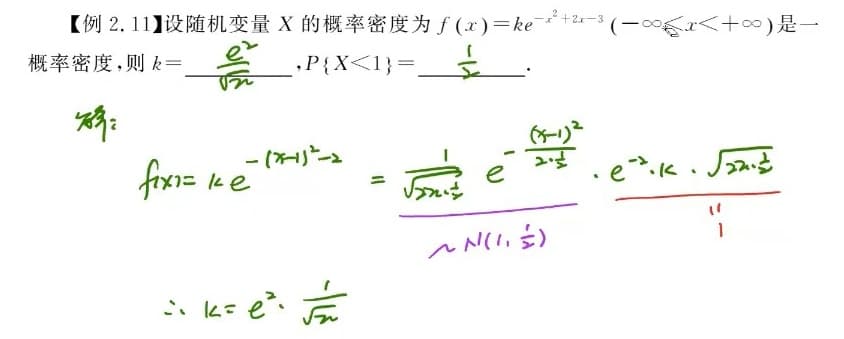 【例 2.11】设随机变量 X 的概率密度为 f(x)=ke^{-x^2+2x-3}(-∞<x<+∞)是一
概率密度,则 k= e^2/√π ,P{X<1}= 1/2 .
解:
f(x)=ke^{-(x-1)^2-2} = 1/√(2π·1/2) e^{-(x-1)^2/(2·1/2)} · e^{-2}·k·√(2π·1/2)
~N(1, 1/2) " 1
∴ k=e^2· 1/√π